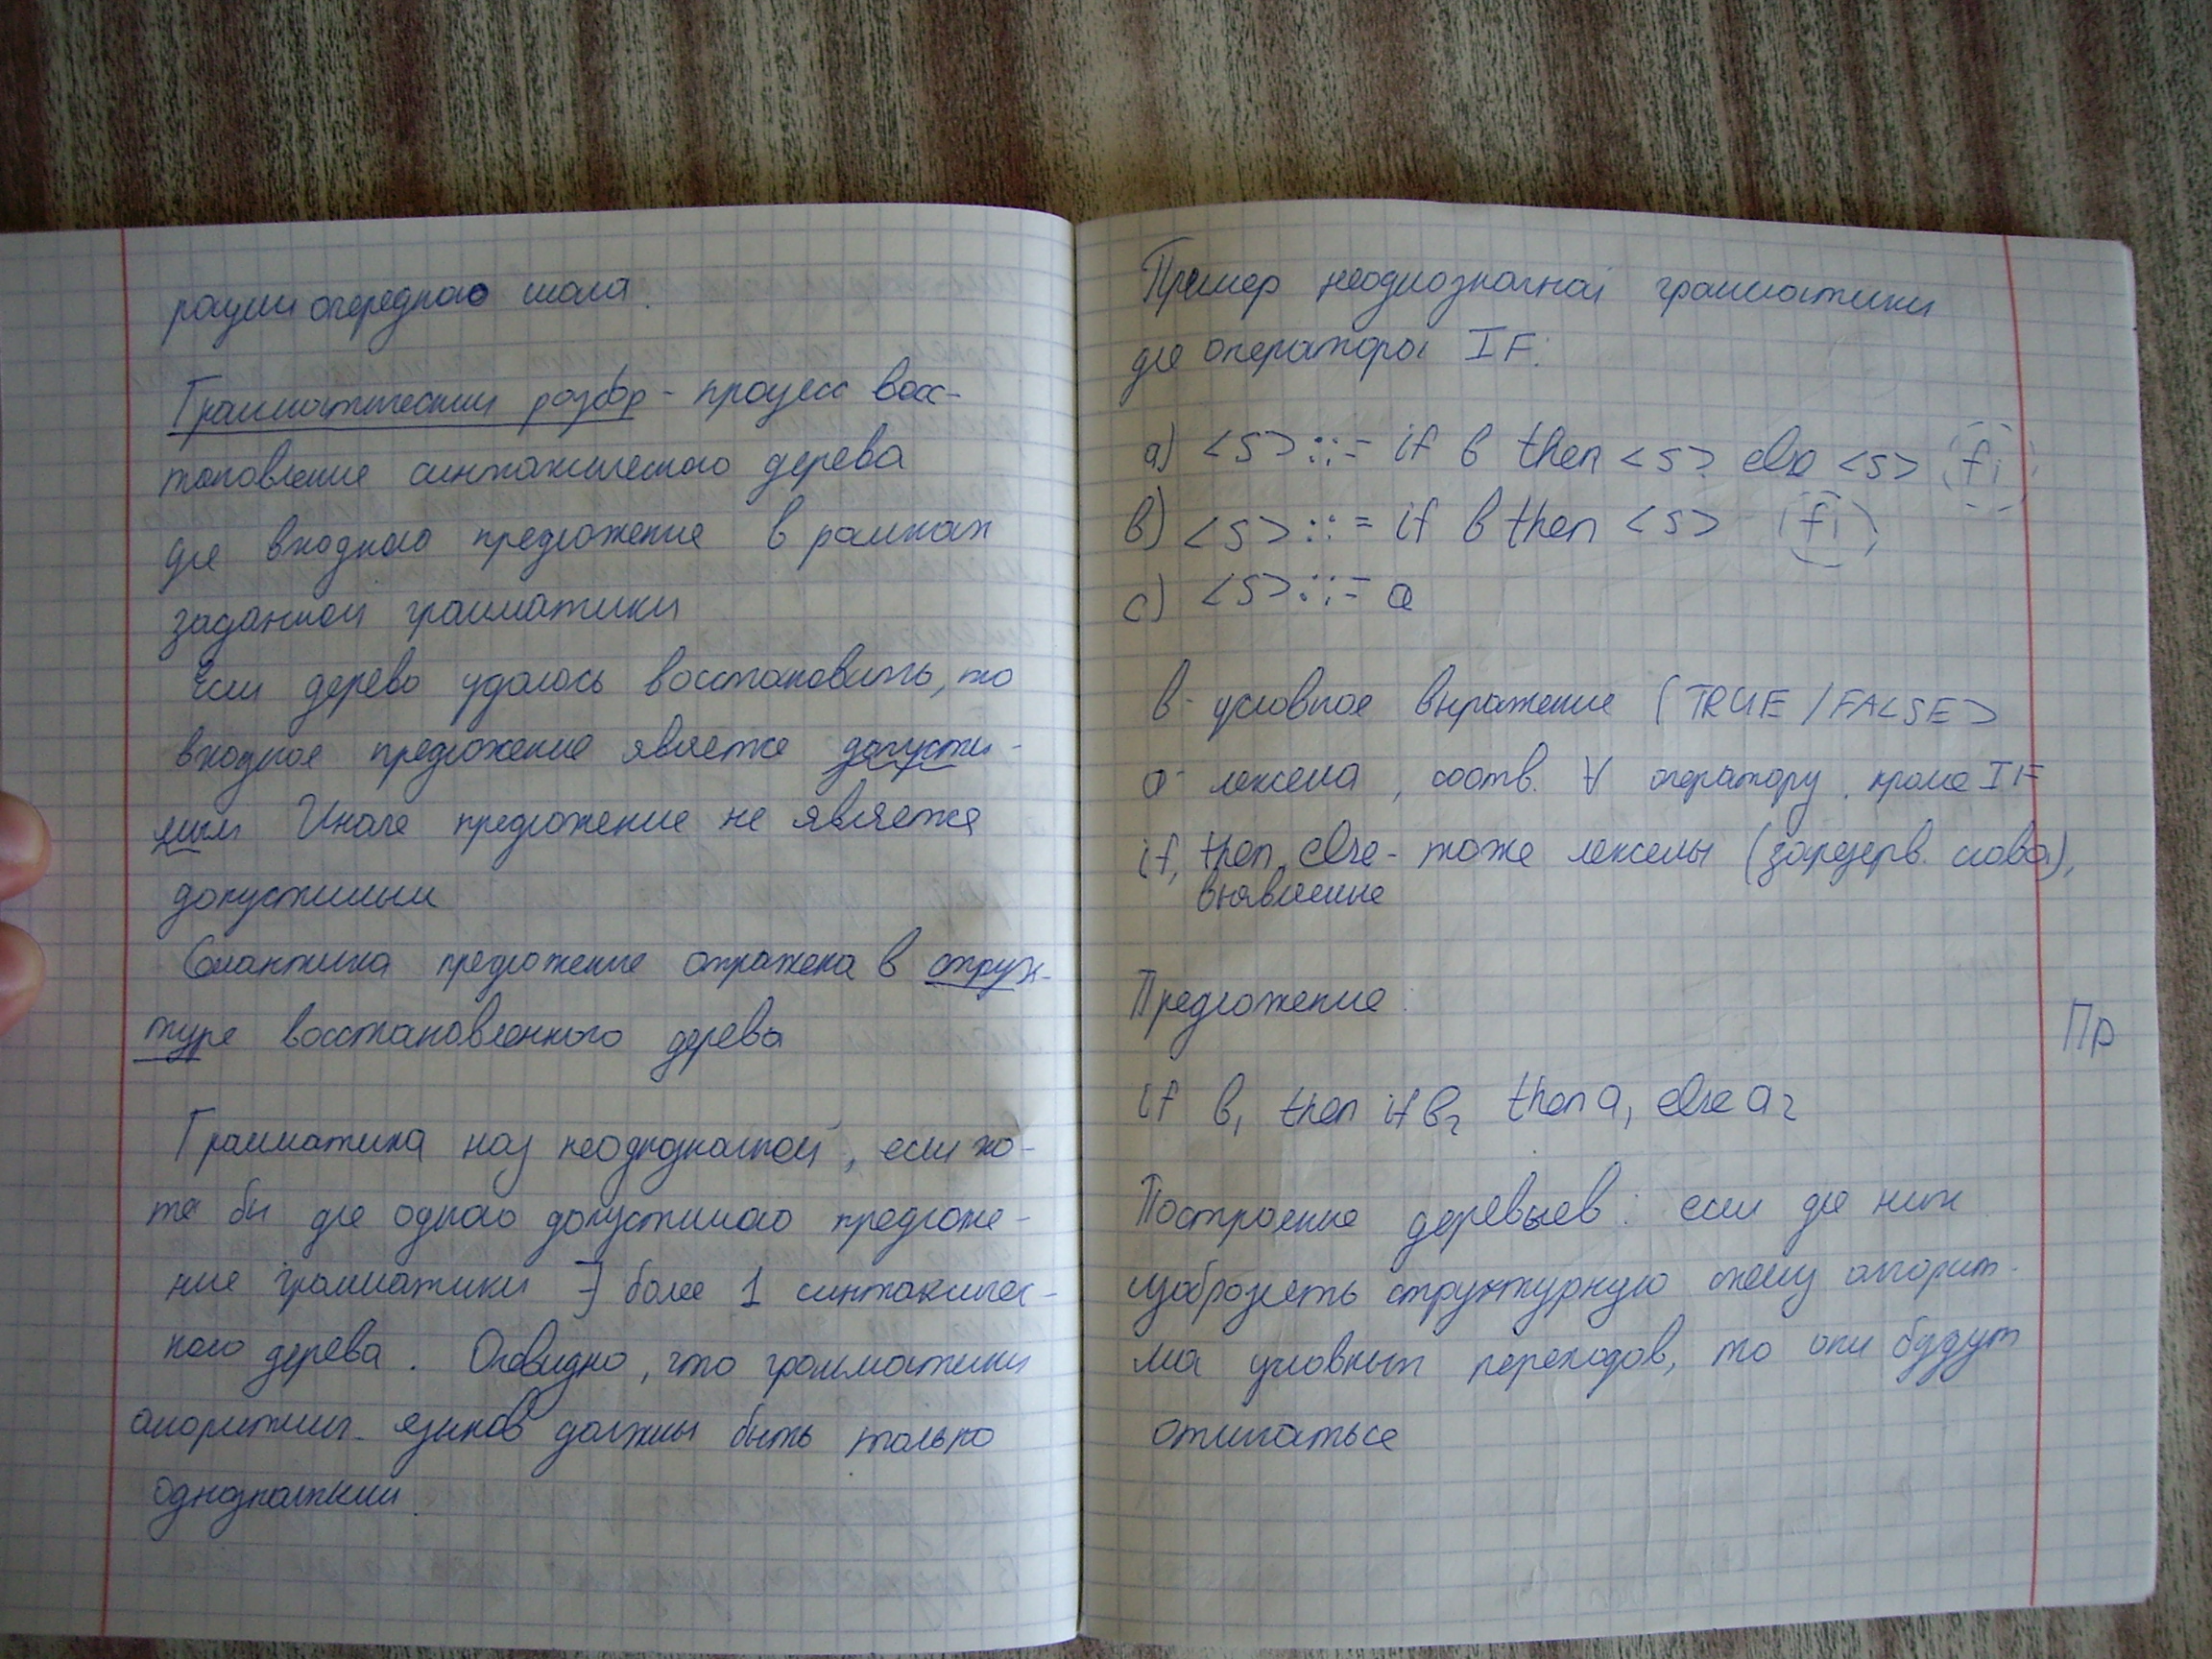 рации очередного шага.
Грамматический разбор - процесс восс-
тановления синтаксического дерева
для входного предложения в рамках
заданной грамматики
Если дерево удалось восстановить, то
входное предложение является допусти-
мым Иначе предложение не является
допустимым
Семантика предложения отражена в струк-
туре восстановленного дерева
Грамматика наз неоднозначной, если хо-
тя бы для одного допустимого предложе-
ния грамматики ∃ более 1 синтаксичес-
кого дерева. Очевидно, что грамматики
алгоритмич. языков должны быть только
однозначными.
Пример неоднозначной грамматики
для оператора IF:
a) <S> ::= if b then <S> else <S> fi
b) <S> ::= if b then <S> fi
c) <S> ::= a
b - условное выражение (TRUE/FALSE>
a - лексема, соотв. ∀ оператору, кроме IF
if, then, else - тоже лексемы (зарезерв. слова),
выявление
Предложение:
Пр
if b1 then if b2 then a1 else a2
Построение деревьев: если для них
изобразить структурную схему алгорит-
ма условных переходов, то они будут
отличаться